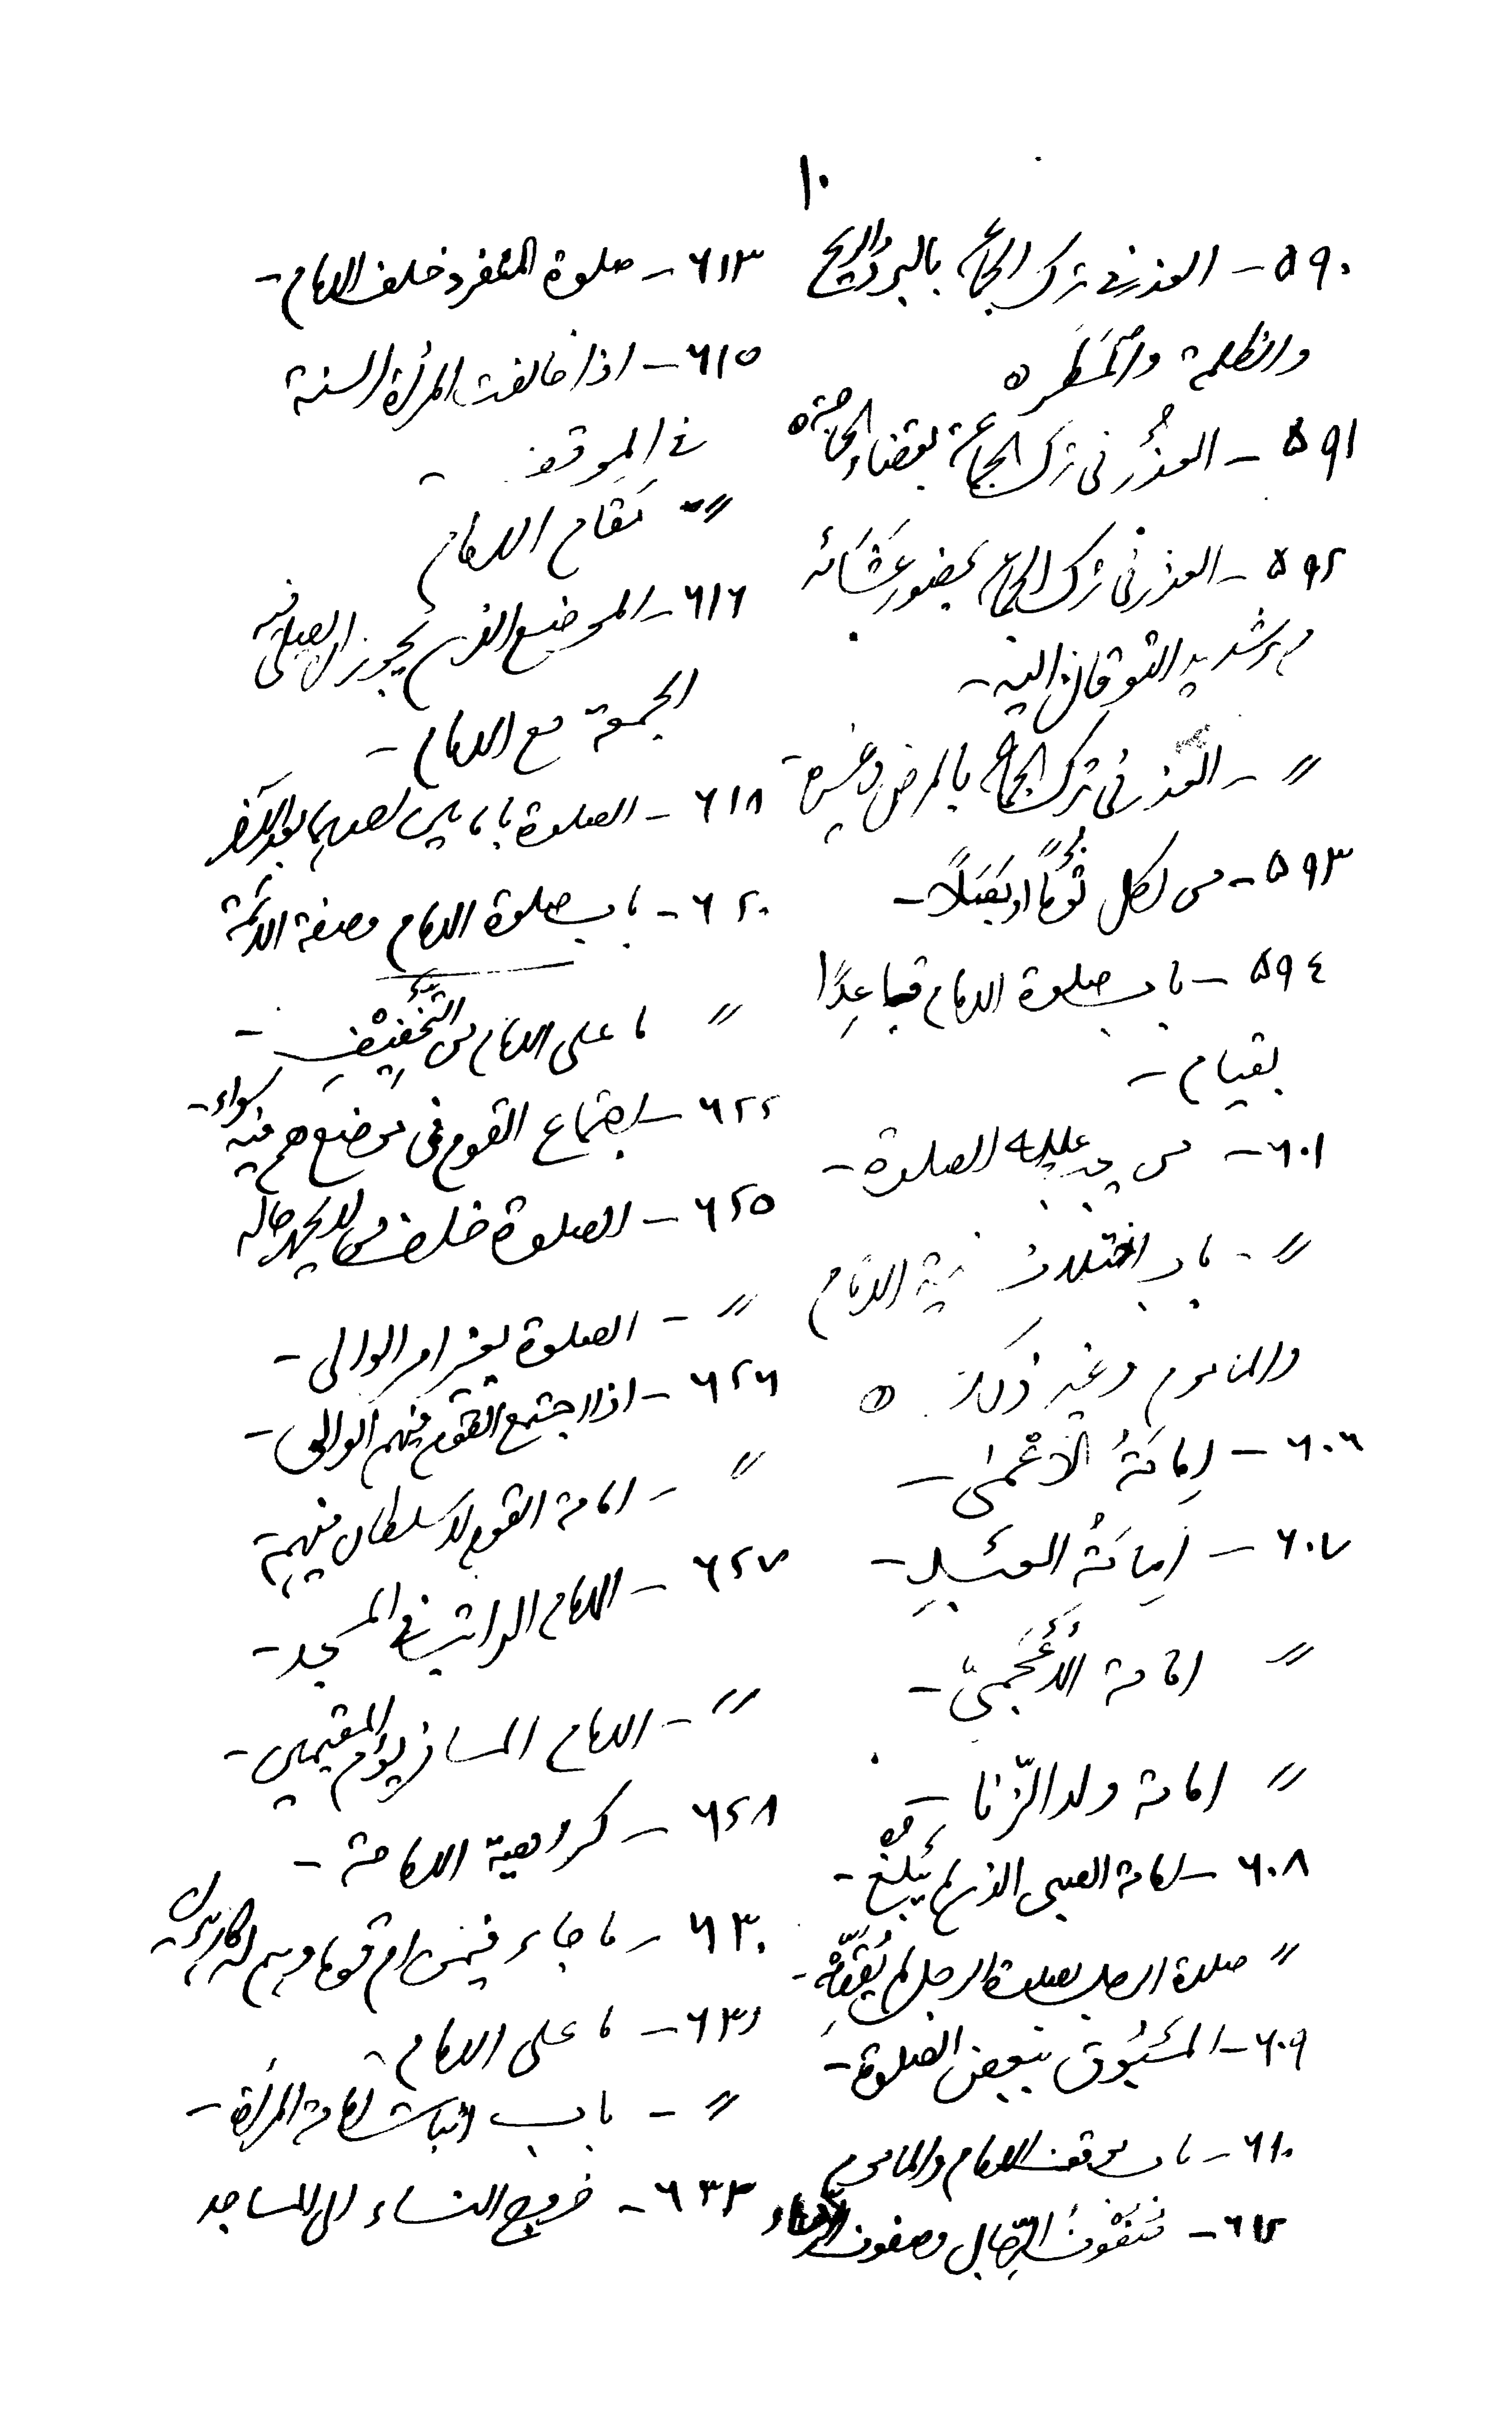 ١٠
٥٩٠ - العذر فى ترك الجماعة بالبرد والريح
والظلمة والمَطَر ٥
٥٩١ - العذر فى ترك الجماعة بقضاء الحاجة ٥
٥٩٢ - العذر فى ترك الجماعة بحضور عَشَائه
مع شديد التوقان اليه -
〃 - العذر فى ترك الجماعة بالمرض وغيره -
٥٩٣ - من اكل ثُومًا او بَصَلًا -
٥٩٤ - باب صلوة الامام قاعِدًا
بقيام -
٦٠١ - من يجب عليه الصلوة -
〃 - باب اختلاف نية الامام
والماموم وغير ذلك ٥
٦٠٦ - اِمَامَةُ الْاَعْمٰى -
٦٠٧ - اِمَامَةُ العَبْدِ -
〃 امامة الْاَعْجَمِيّ -
〃 امامة ولد الزّنا -
٦٠٨ - امامة الصبى الذى لم يَبْلُغْ -
〃 صلوة الرجل بصلوة الرجل لم يَؤُمَّهُ -
٦٠٩ - المَسْبُوق ببعض الصلوة -
٦١٠ - باب موقف الامام والماموم
٦١٢ - صُفُوْفُ الرِّجَال وصفوف النساء
٦١٣ - صلوة المنفرد خلف الامام -
٦١٥ - اذا خالفت المرأة السنة
فى الموقف -
〃 - مَقام الامام
٦١٦ - الموضع الذى يجوز ان يصلى فيه
الجمعة مع الامام -
٦١٨ - الصلوة بامامين احدهما بعد الآخر
٦٢٠ - باب صلوة الامام وصفة الائمة
〃 ما على الامام من التَّخْفِيْفِ -
٦٢٢ - اجتماع القوم فى موضع هم فيه سواء -
٦٢٥ - الصلوة خلف من لا يحمد حاله
〃 - الصلوة بغير امر الوالى -
٦٢٦ - اذا اجتمع القوم فيهم الوالى -
〃 - امامة القوم لا سلطان فيهم
٦٢٧ - الامام الراتب فى المسجد -
〃 - الامام المسافر يؤم المقيمين -
٦٢٨ - كراهية الامامة -
٦٣٠ - ما جاء فيمن ام قوما وهم له كارهون -
٦٣١ - ما على الامام -
〃 - باب اثبات امامة المرأة -
٦٣٣ - خروج النساء الى المساجد